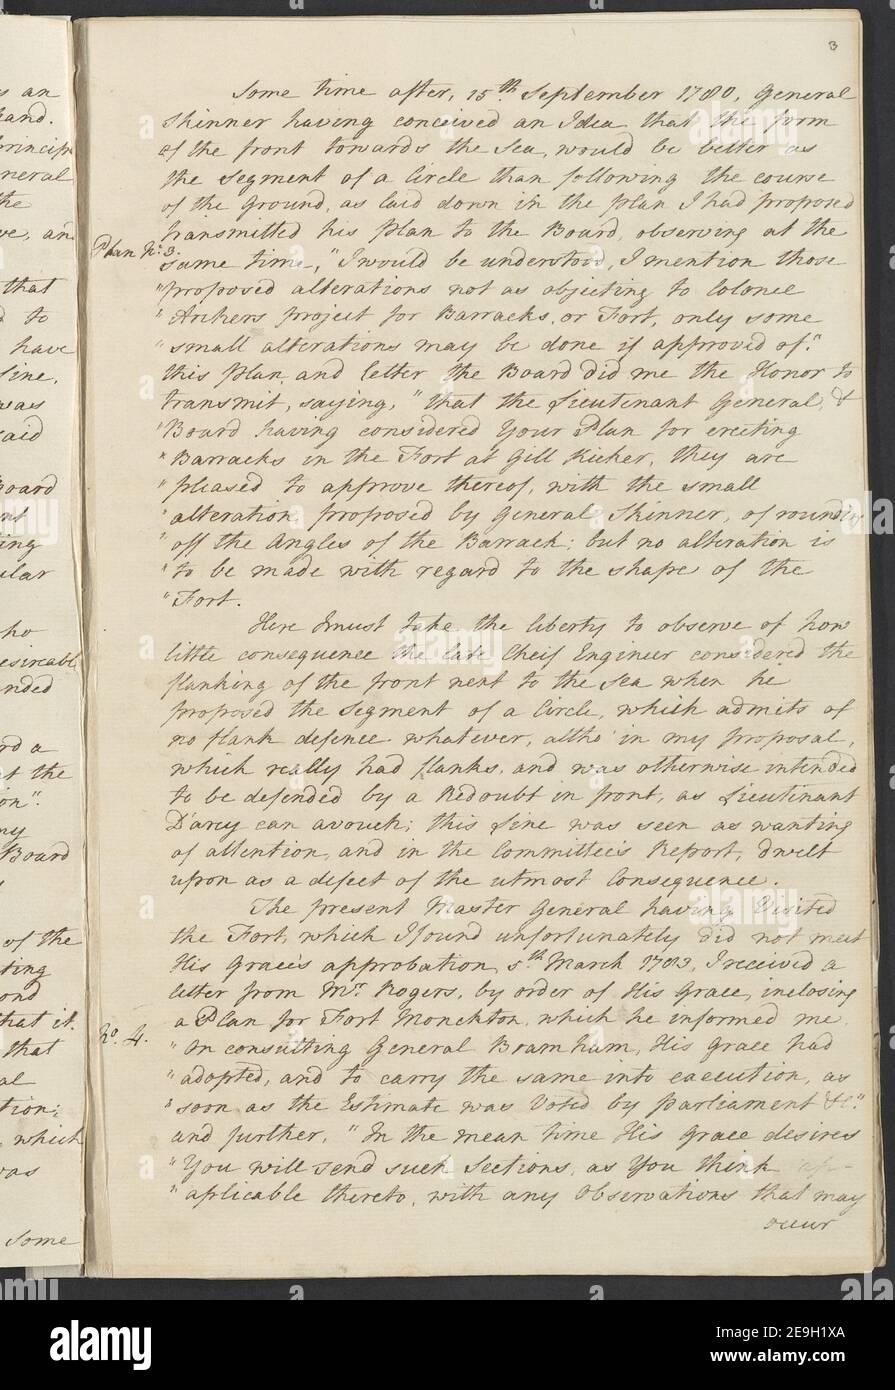 s an
hand.
Princip
neral
the
ve, and
that
d to
have
line.
was
said
Board
nt
ing
ular
ho
esireable
nded
rd a
at the
ion".
my
Board
of the
ting
ond
that it.
that
al
tion;
which
was
some
3
Some time after, 15.th September 1780, General
Skinner having conceived an Idea that the form
of the front towards the Sea, would be better as
the Segment of a Circle than following the course
of the Ground, as laid down in the plan I had proposed
transmitted his Plan to the Board, observing at the
Plan No. 3.
same time, "I would be understood, I mention those
"proposed alterations not as objecting to Colonel
"Archers project for Barracks, or Fort, only some
"small alterations may be done if approved of."
this Plan, and letter the Board did me the Honor to
transmit, saying, "that the Lieutenant General, &
"Board having considered Your Plan for erecting
"Barracks in the Fort at Gill Kicker, they are
"pleased to approve thereof, with the small
"alteration, proposed by General Skinner, of rounding
"off the Angles of the Barrack; but no alteration is
"to be made with regard to the shape of the
"Fort.
Here I must take the liberty to observe of how
little consequence the late Cheif Engineer considered the
flanking of the front next to the Sea when he
proposed the Segment of a Circle, which admits of
no flank defence whatever, altho' in my proposal,
which really had flanks, and was otherwise intended
to be defended by a Redoubt in front, as Lieutinant
D'arcy can avouch; this Line was seen as wanting
of attention, and in the Committee's Report, dwelt
upon as a defect of the utmost Consequence.
The present Master General having Visited
the Fort, which I found unfortunately did not meet
His Grace's approbation, 5.th March 1783, I received a
letter from Mr. Rogers, by order of His Grace, inclosing
a Plan for Fort Monckton, which he informed me,
No. 4.
"On consulting General Bramham, His Grace had
"adopted, and to carry the same into execution, as
"soon as the Estimate was Voted by Parliament &c."
and further, "In the mean time His Grace desires
"You will send such Sections, as You think ap-
"aplicable thereto, with any Observations that may
occur
alamy
Image ID: 2E9H1XA
www.alamy.com